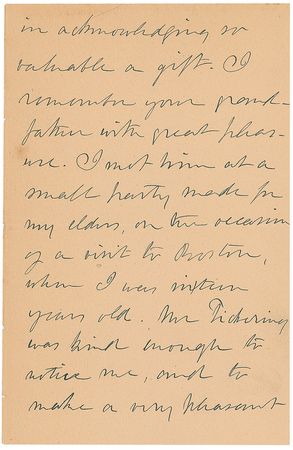 in acknowledging so
valuable a gift. I
remember your grand-
father with great pleas-
ure. I met him at a
small party made for
my elders, on the occasion
of a visit to Boston,
when I was sixteen
years old. Mr Pickering
was kind enough to
notice me, and to
make a very pleasant